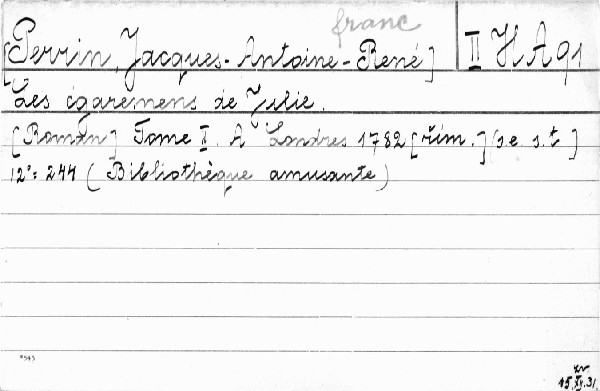 franc
[Perrin, Jacques-Antoine-René] II H A 91
Les égaremens de Julie.
[Román] Tome II. A Londres 1782 [řím.] (s.e. s.t ]
12°: 244 ( Bibliothèque amusante )
*545
15.XI.31.